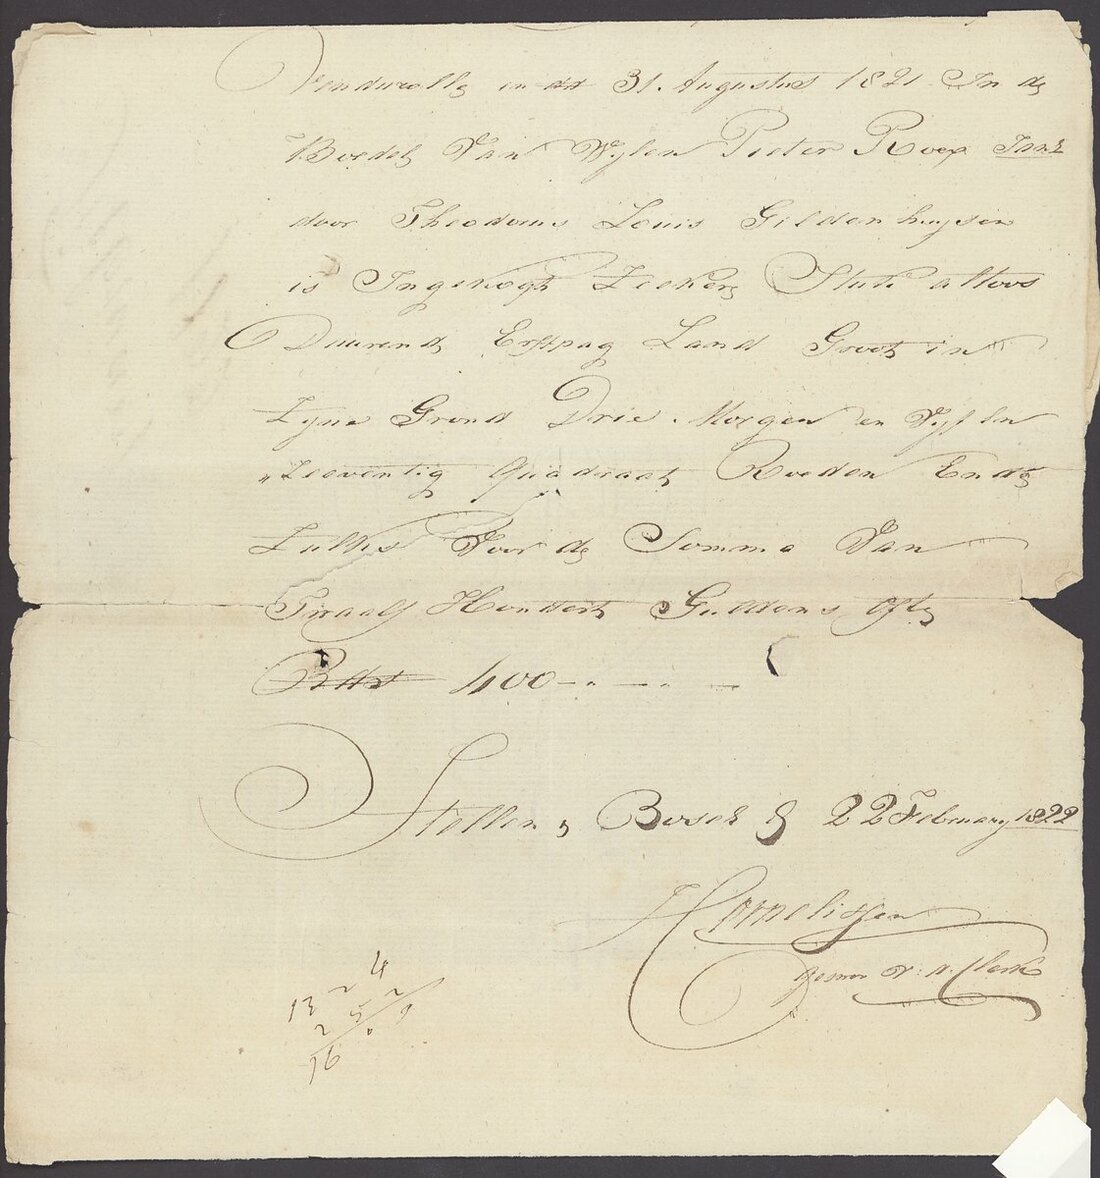 Vendurolle in dd 31. Augustus 1821 In de
Boedel Van Wylen Pieter Roux Jansz
door Theodorus Louis Gildenhuysen
is Ingekogt Zeekere Stuk altoos
Duurende Erfpag Land Groot in
Zyne Grond Drie Morgen en Vyf en
Zeeventig Quadraat Roeden Ende
Zulks Voor de Somma Van
Twaalf Hondert Guldens Ofte
Rds 400
Stellen Bosch 22 February 1822
Cornelissen
Clerk
4
13 2 2
2 5 9
16